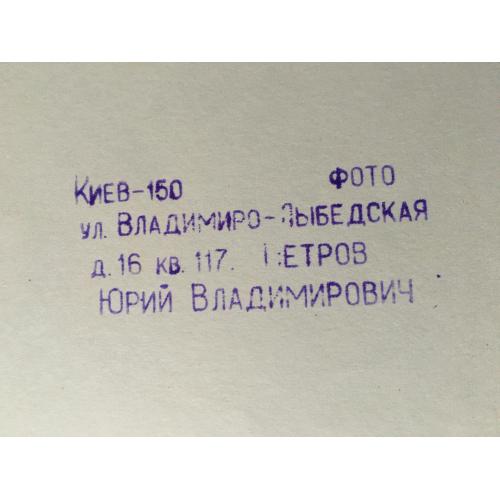 Киев-150 ФОТО
ул. Владимиро-Лыбедская
д. 16 кв. 117. Петров
Юрий Владимирович